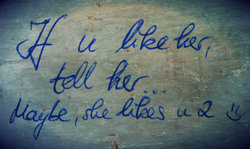 If u like her,
tell her...
Maybe, she likes u 2 :)